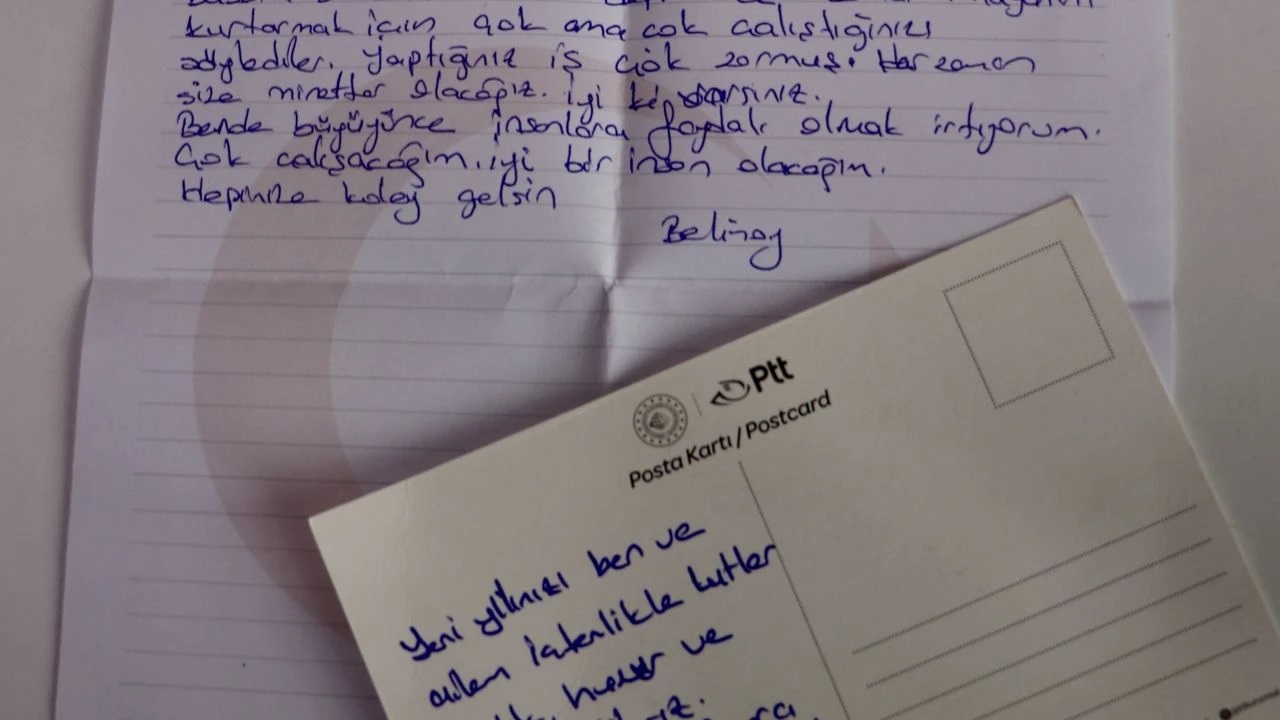 kurtarmak için çok ama çok çalıştığınızı
söylediler. Yaptığınız iş çok zormuş. Her zaman
size minettar olacağız. iyi ki varsınız.
Bende büyüyünce insanlara faydalı olmak istiyorum.
Çok çalışacağım. iyi bir insan olacağım.
Hepinize kolay gelsin
Belinay
Ptt
Posta Kartı / Postcard
Yeni yılınızı ben ve
ailem içtenlikle kutlar
huzur ve